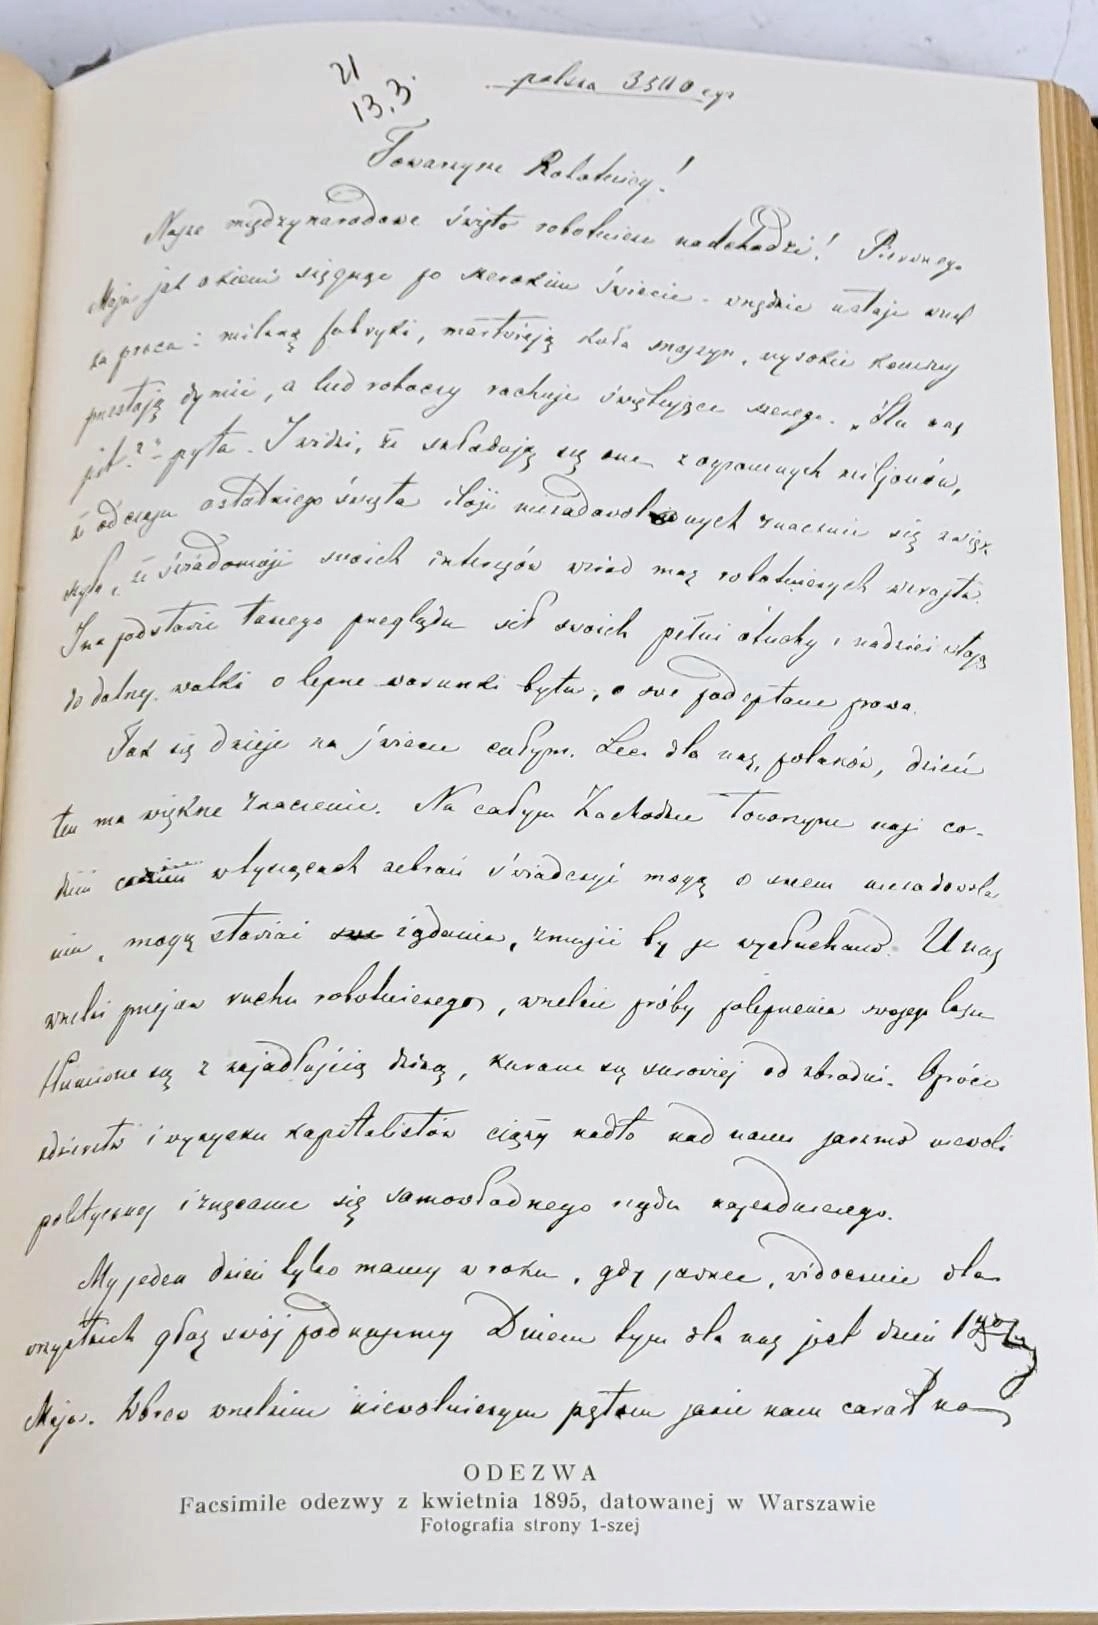 21
13.3.
polska 3500 egz
Towarzysze Robotnicy!
Nasze międzynarodowe święto robotnicze nadchodzi! Pierwszego
Maja jak okiem sięgnąć po szerokim świecie - wszędzie ustaje wszel
ka praca: milkną fabryki, martwieją koła maszyn, wysokie kominy
przestają dymić, a lud roboczy rachuje świętujące szeregi. „Ilu nas
jest?" - pyta. I widzi, że składają się one z ogromnych miljonów,
że od czasu ostatniego święta ilość niezadowolonych znacznie się zwięk
szyła, że świadomość swoich interesów wśród mas robotniczych wzrasta.
I na podstawie takiego przeglądu sił swoich pełni otuchy i nadziei stają
do dalszej walki o lepsze warunki bytu, o swe podeptane prawa.
Tak się dzieje na świecie całym. Lecz dla nas, polaków, dzień
ten ma większe znaczenie. Na całym Zachodzie towarzysze nasi co-
dzień w tysiącach zebrań świadczyć mogą o swem niezadowole
niu, mogą stawiać żądania, zmusić by je wysłuchano. U nas
wszelki przejaw ruchu robotniczego, wszelkie próby polepszenia swojego losu
tłumione są z zajadłością dziką, karane są surowiej od zbrodni. Oprócz
zdzierstw i wyzysku kapitalistów cięży nadto nad nami jarzmo niewoli
politycznej i znęcanie się samowładnego rządu najezdniczego.
My jeden dzień tylko mamy w roku, gdy jawnie, widocznie dla
wszystkich głos swój podnosimy Dniem tym dla nas jest dzień 1
Maja. Wbrew wszelkim niewolniczym pętom jakie nam carat na
ODEZWA
Facsimile odezwy z kwietnia 1895, datowanej w Warszawie
Fotografia strony 1-szej